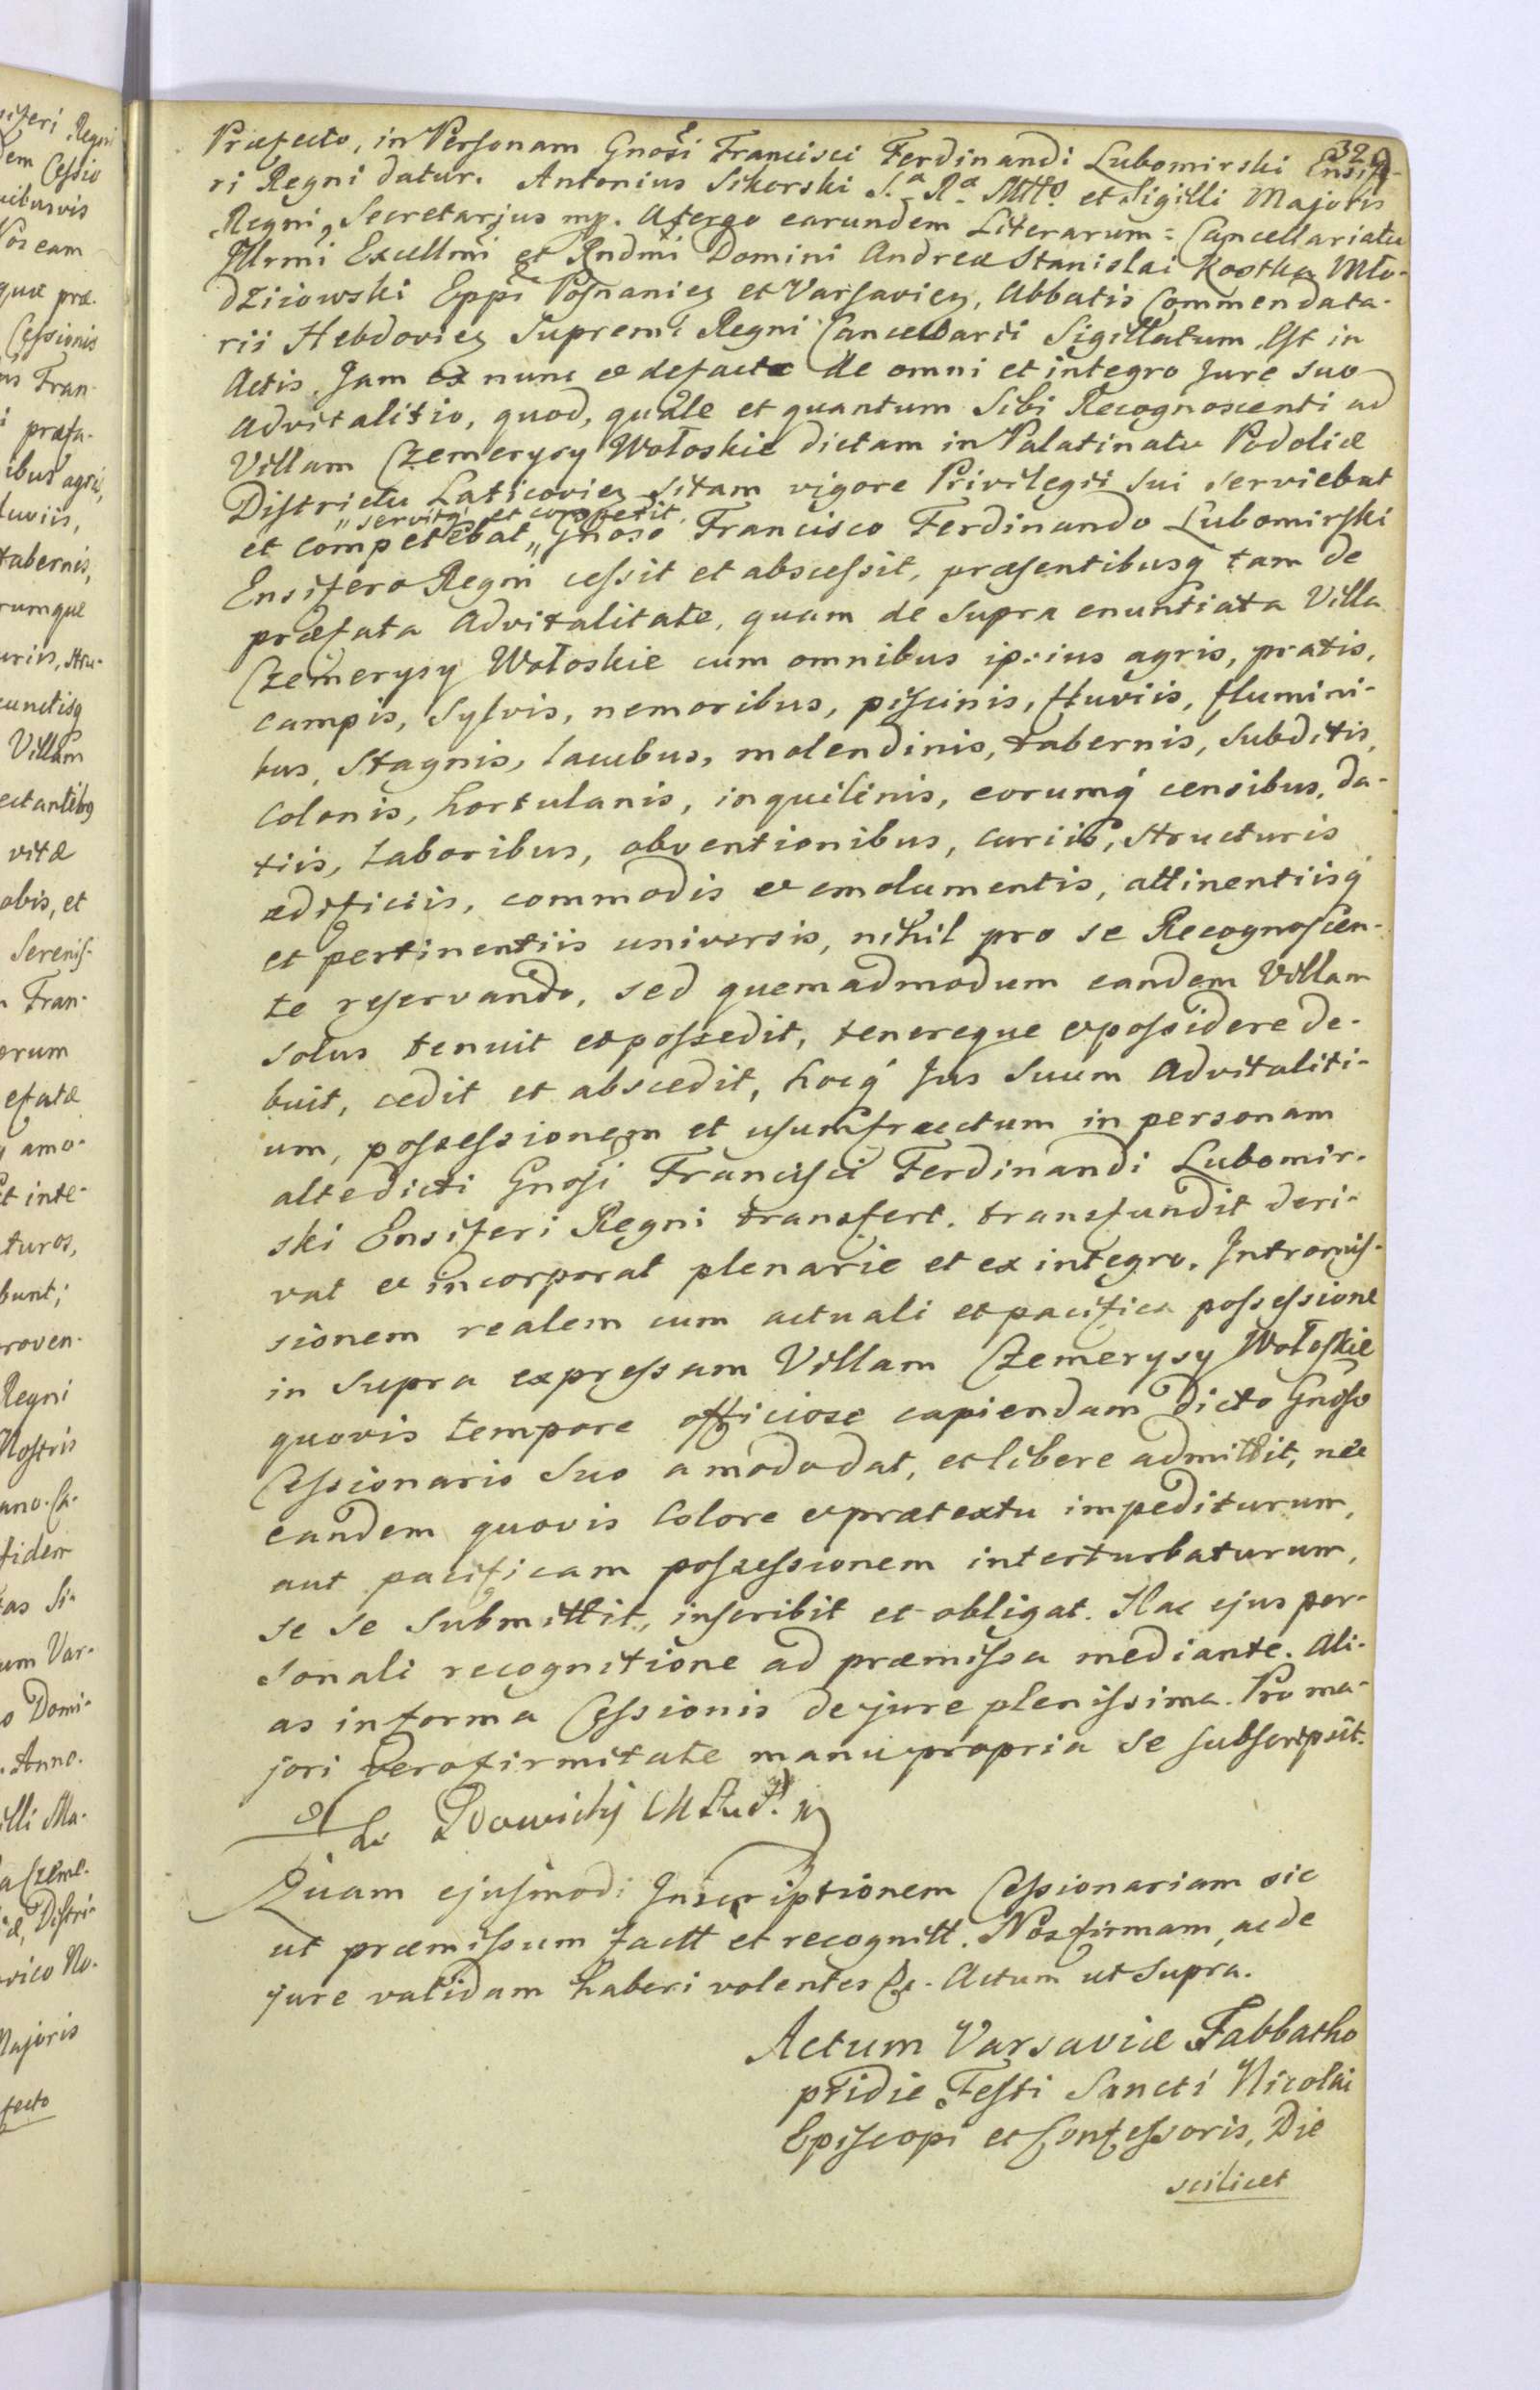 329
Præfecto, in Personam Gnosi Francisci Ferdinandi Lubomirski Ensife-
ri Regni datur. Antonius Sikorski S.ᵃ R.ᵃ Mttis et Sigilli Majoris
Regni, Secretarjus mp. Atergo earundem Literarum = Cancellariatu
Illrmi Excellmi et Rndmi Domini Andreæ Stanislai Kostka Mło-
dziiowski Eppi Posnanien et Varsavien, Abbatis Commendata-
rii Hebdovien Supremi Regni Cancellarii Sigillatum, Est in
Actis. Jam ex nunc et defacto de omni et integro Jure suo
advitalitio, quod, quale et quantum Sibi Recognoscenti ad
Villam Czemerysy Wołoskie dictam in Palatinatu Podoliæ
Districtu Laticovien sitam vigore Privilegii sui serviebat
„ servitq́ et competit.
et competebat „ Gnoso Francisco Ferdinando Lubomirski
Ensifero Regni cessit et abscessit, præsentibusq́ tam de
præfata advitalitate, quam de supra enuntiata Villa
Czemerysy Wołoskie cum omnibus ipsius agris, pratis,
campis, Sylvis, nemoribus, piscinis, fluviis, flumini-
bus, Stagnis, lacubus, molendinis, tabernis, Subditis,
Colonis, hortulanis, inquilinis, eorumq́ censibus, da-
tiis, laboribus, obventionibus, curiis, structuris
ædificiis, commodis et emolumentis, attinentiisq́
et pertinentiis universis, nihil pro se Recognoscen-
te reservando, sed quemadmodum eandem Villam
solus tenuit et possedit, tenereque et possidere de-
buit, cedit et abscedit, hocq́ Jus Suum Advitaliti-
um, possessionem et usumfructum in personam
altedicti Gnosi Francisci Ferdinandi Lubomir-
ski Ensiferi Regni transfert, transfundit deri-
vat et incorporat plenarie et ex integro. Intromis-
sionem realem cum actuali et pacifica possessione
in supra expressam Villam Czemerysy Wołoskie
quovis tempore officiose capiendam Dicto Gnoso
Cessionario Suo amodo dat, et libere admittit, nec
eandem quovis Colore et prætextu impediturum,
aut pacificam possessionem interturbaturum,
se se Submittit, inscribit et obligat. Hac ejus per-
sonali recognitione ad præmissa mediante. Ali-
as in forma Cessionis de jure plenissima. Pro ma-
jori vero firmitate manu propria se subscripsit.
Quam ejusmodi Inscriptionem Cessionariam sic
ut præmissum factt et recognitt. Nos firmam, ac de
jure validam haberi volentes &c. Actum ut Supra.
Actum Varsaviæ Sabbatho
pridie Festi Sancti Nicolai
Episcopi et Confessoris, Die
scilicet